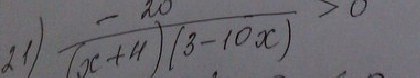 21) \frac{-20}{(x+4)(3-10x)} > 0